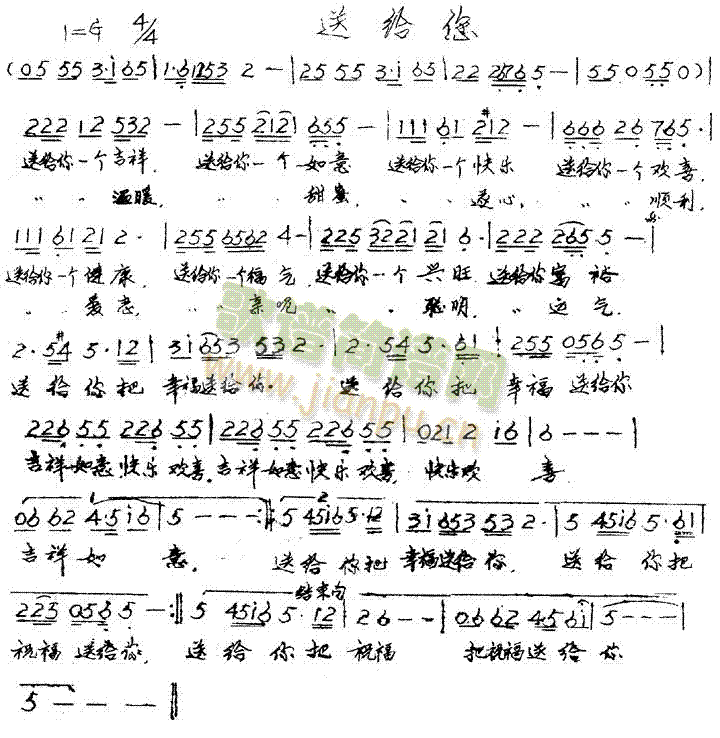 送给您
1= 4/4
(05 55 3·i 65 | 1·6 1253 2 – | 25 55 3·i 65 | 22 2765 5 – | 55 0 55 0) |
222 12 532 – | 255 2121 655 – | 111 61 212 – | 666 26 765 · |
送给你一个吉祥, 送给你一个如意 送给你一个快乐 送给你一个欢喜,
〃 〃 温暖, 〃 〃 甜蜜, 〃 〃 遂心, 〃 〃 顺利,
111 61 21 2 · | 255 6562 4 – | 225 3221 21 6 · | 222 265 5 – |
送给你一个健康, 送给你一个福气, 送给你一个兴旺 送给你富裕
〃 〃 〃 〃 〃 〃 聪明, 〃 运气.
2 · #54 5 · 12 | 3i653 532 · | 2 · 54 5 · 61 | 255 0565 – |
送给你把幸福送给你. 送给你把幸福送给你
226 55 226 55 | 226 55 226 55 | 0212 i6 | 6 – – – |
吉祥如意快乐欢喜, 吉祥如意快乐欢喜, 快乐欢喜
066 62 4·5i6 | 5 – – – :‖ 5 45i65·12 | 3i653 532 · | 5 45i6 5·61 |
吉祥如意. 送给你把幸福送给你, 送给你把
结束句
223 0565 – :‖ 5 45i6 5·12 | 26 – – | 0662 456i | 5 – – – |
祝福送给你, 送给你把祝福 把祝福送给你
5 – – – ‖
歌谱简谱网
www.jianpu.cn